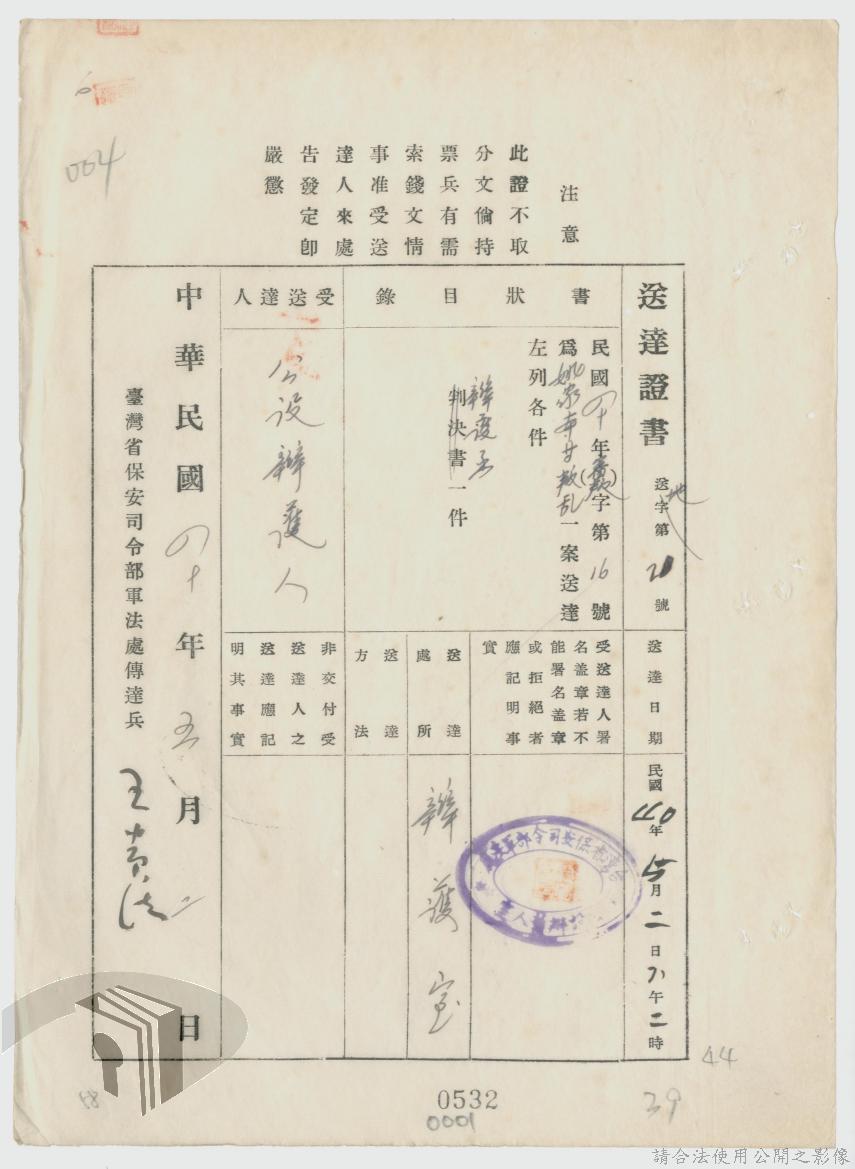 004
注意
此證不取
分文倘持
票兵有需
索錢文情
事准受送
達人來處
告發定卽
嚴懲
送達證書
送字第21號
地
送達日期
民國40年5月二日下午二時
書狀目錄
民國四十年()字第16號
為叛乱一案送達
左列各件
辯護書
判決書一件
受送達人署
名盖章若不
能署名盖章
或拒絕者
應記明事
實
送達處所
辯護室
送達方法
受送達人
公設辯護人
非交付受
送達人之
送達應記
明其事實
中華民國四十年五月二日
臺灣省保安司令部軍法處傳達兵
0532
0001
44
39
58
請合法使用公開之影像